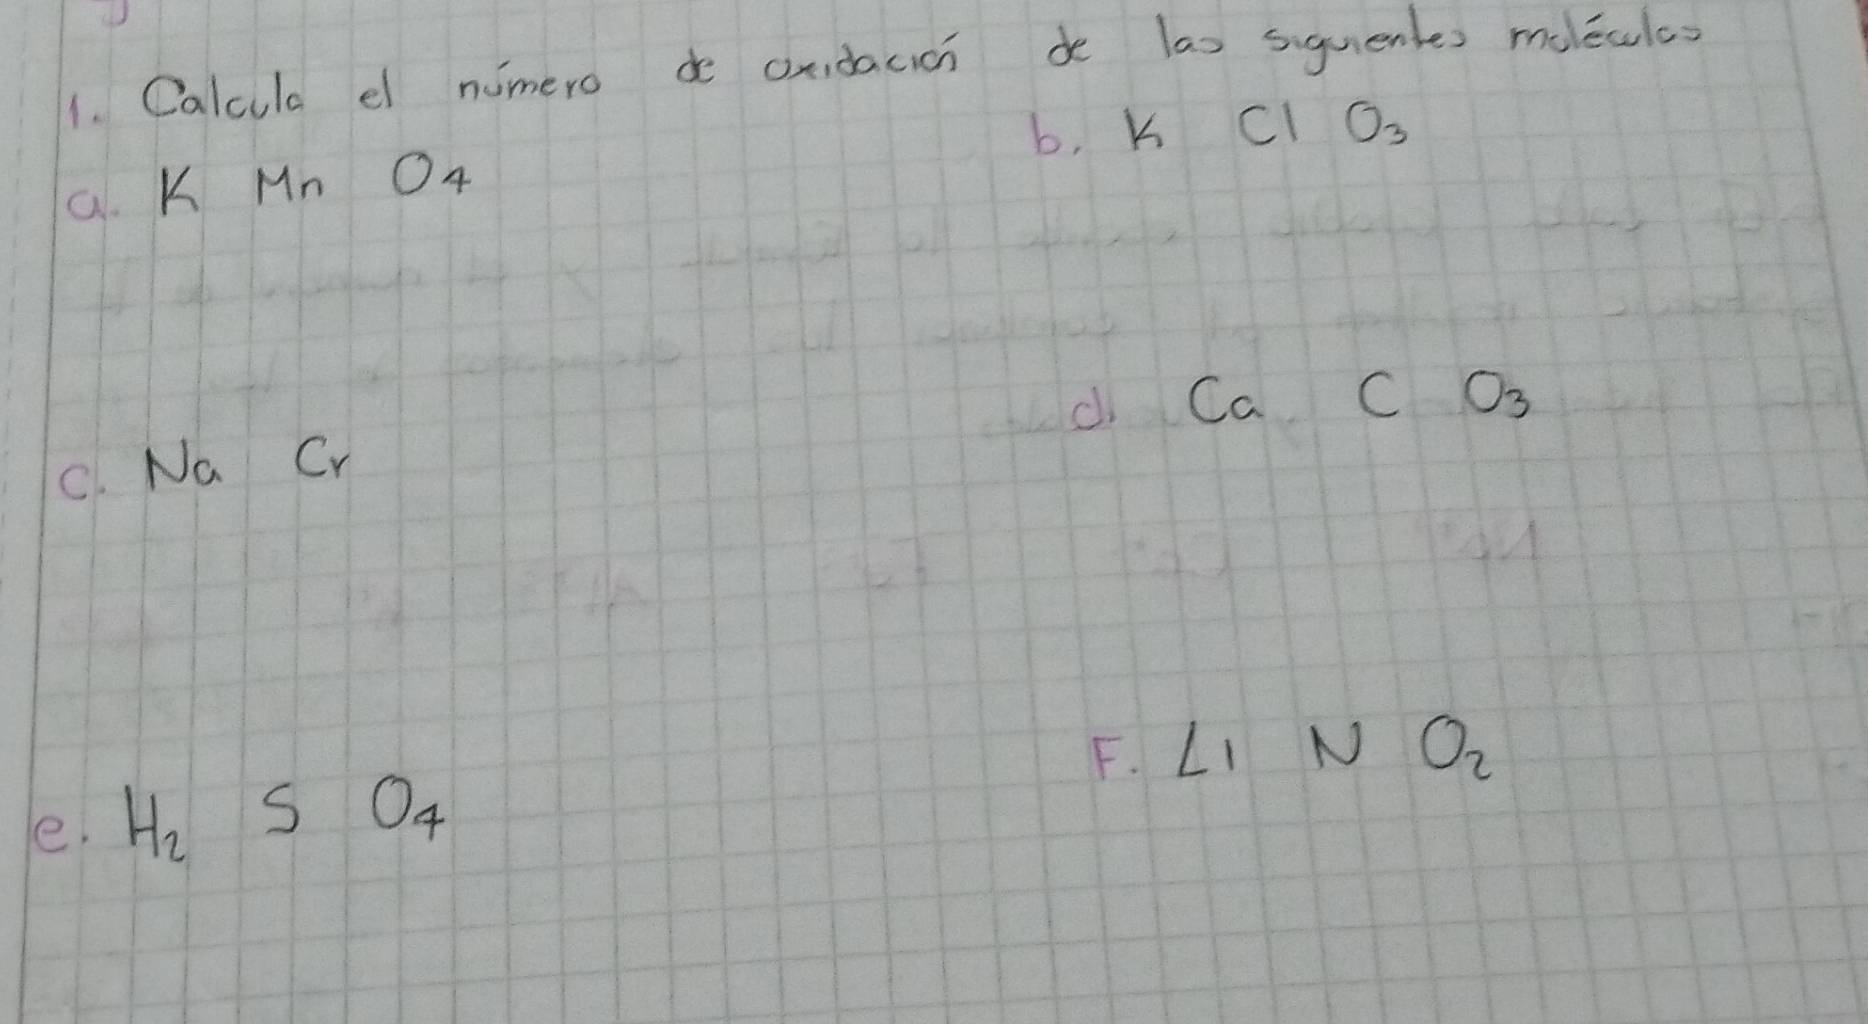 1. Calcula el número de oxidación de las siguientes moléculas
a. K Mn O4
b. K Cl O3
c. Na Cr
d. Ca C O3
e. H2 S O4
F. Li N O2